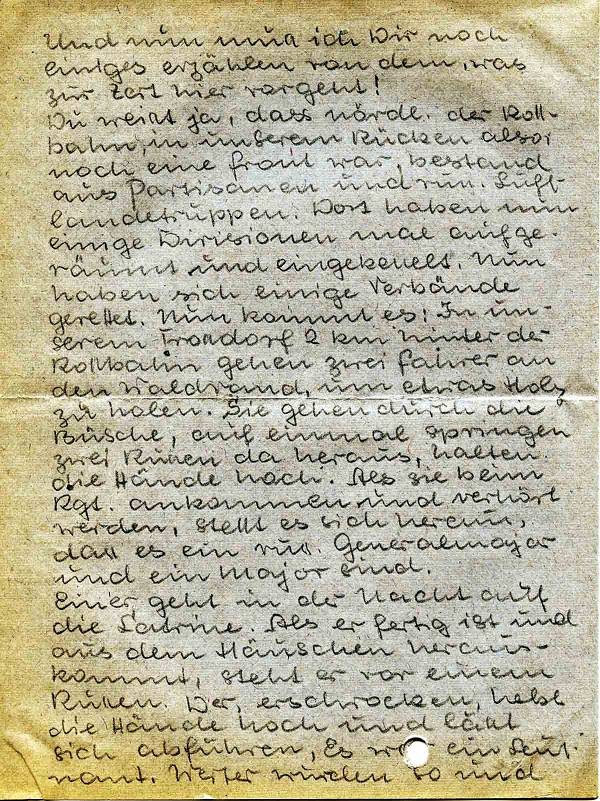 Und nun muß ich Dir noch
einiges erzählen von dem, was
zur Zeit hier vorgeht!
Du weißt ja, dass nördl. der Roll-
bahn, in unserem Rücken also,
noch eine Front war, bestand
aus Partisanen und russ. Luft-
landetruppen. Dort haben nun
einige Divisionen mal aufge-
räumt und eingekesselt. Nun
haben sich einige Verbände
gerettet. Nun kommt es! In un-
serem Troßdorf 2 km hinter der
Rollbahn gehen zwei Fahrer an
den Waldrand, um etwas Holz
zu holen. Sie gehen durch die
Büsche, auf einmal springen
zwei Russen da heraus, halten
die Hände hoch. Als sie beim
Rgt. ankommen und verhört
werden, stellt es sich heraus,
daß es ein russ. Generalmajor
und ein Major sind.
Einer geht in der Nacht auf
die Latrine. Als er fertig ist und
aus dem Häuschen heraus-
kommt, steht er vor einem
Russen. Der, erschrocken, hebt
die Hände hoch und läßt
sich abführen, Es war ein Leut-
nant. Weiter wurden so und